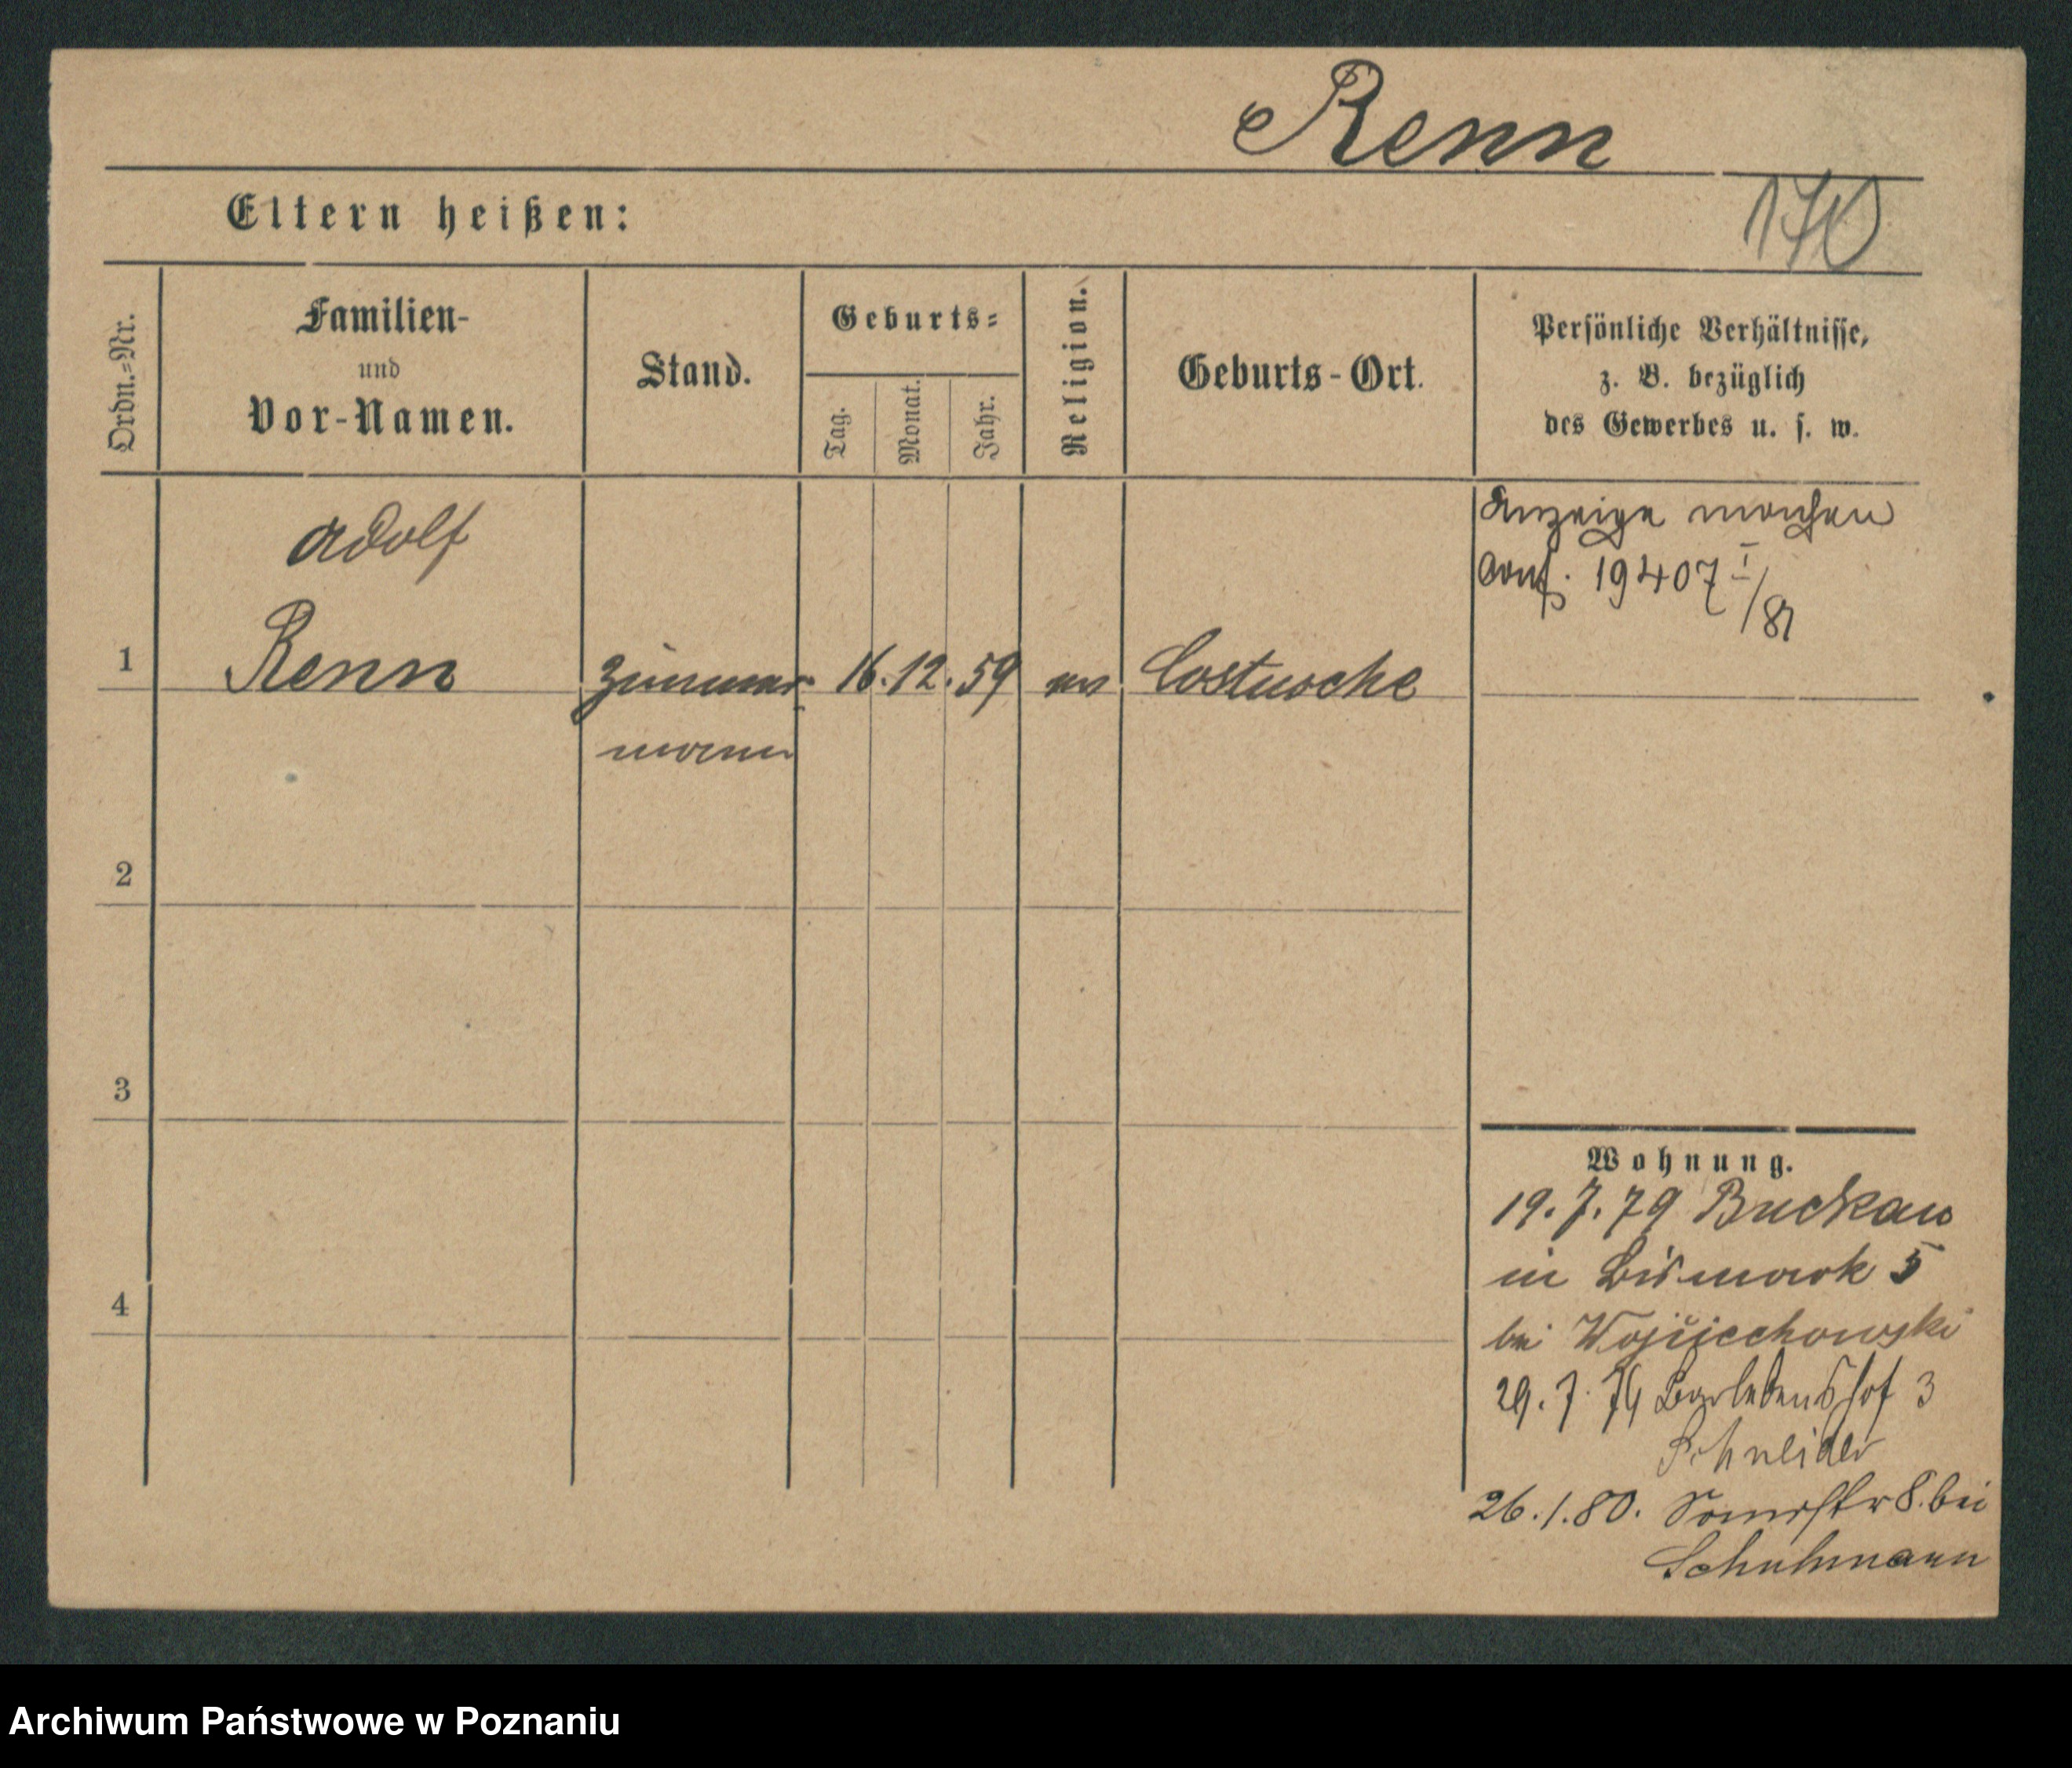 Renn
170
Eltern heißen:
Ordn.=Nr.
Familien-
und
Vor-Namen.
Stand.
Geburts=
Tag.
Monat.
Jahr.
Religion.
Geburts-Ort.
Persönliche Verhältnisse,
z. B. bezüglich
des Gewerbes u. s. w.
Anzeige machen
conf. 19407 I/81
Adolf
1 Renn Zimmer- 16.12.59 Costusche
mann
2
3
4
Wohnung.
19.7.79 Buckau
in Bismark 5
bei Wojciechowski
29.7.79 3
Schneider
26.1.80. 8. bei
Schuhmann
Archiwum Państwowe w Poznaniu